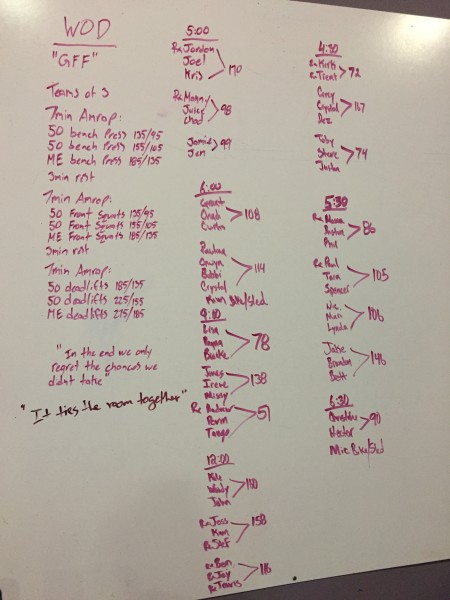 WOD
"GFF"
Teams of 3
7min Amrap:
50 bench press 135/95
50 bench press 155/105
ME bench press 185/135
3min rest
7min Amrap:
50 Front Squats 135/95
50 Front Squats 155/105
ME Front Squats 185/135
3min rest
7min Amrap:
50 deadlifts 185/135
50 deadlifts 225/155
ME deadlifts 275/185
"In the end we only
regret the chances we
didnt take"
"It ties the room together"
5:00
Rx Jordan
Joel
Kris
170
Rx Manny
Juicy
Chad
98
Jamie
Jen
99
6:00
Grant
Chab
Curtis
108
Paulina
Bobbi
Crystal
114
Kian Bike/Sled
9:00
Lisa
Rayna
Burke
78
James
Irene
Missy
138
Rx
Penn
Tango
57
12:00
Kyle
Woody
John
Rx Jess
Kim
Rx Stef
158
Rx Ben
Rx Jay
Rx Travis
116
4:30
Rx Kirk
Rx Trent
72
Corey
Crystal
Dez
117
Toby
Steve
Justin
74
5:30
Rx
Justin
Phil
86
Rx Paul
Tara
Spencer
105
Nic
Mari
Lynda
106
Jake
Brandon
Brett
146
6:30
Christine
Hector
90
Mic Bike/Sled